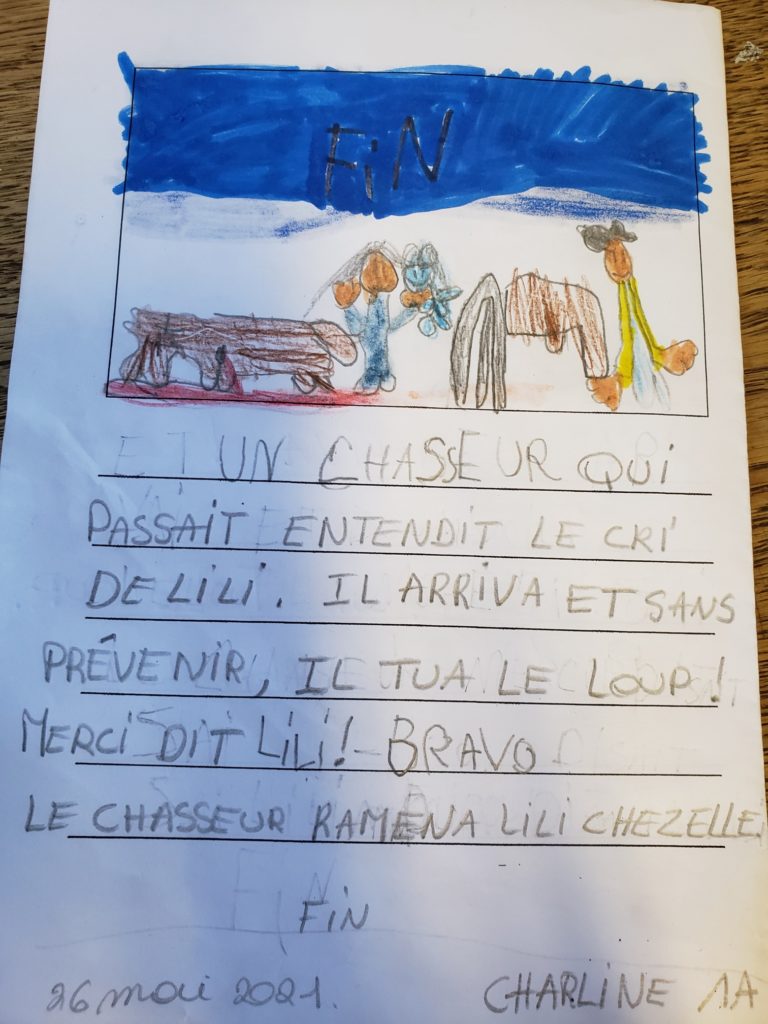 FiN
ET UN CHASSEUR QUI
PASSAiT ENTENDiT LE CRi
DE LiLi. IL ARRiVA ET SANS
PRÊVENiR, IL TUA LE LOUP!
MERCi DiT LiLi! - BRAVO
LE CHASSEUR RAMENA LiLi CHEZELLE
FiN
26 mai 2021.
CHARLiNE 1A